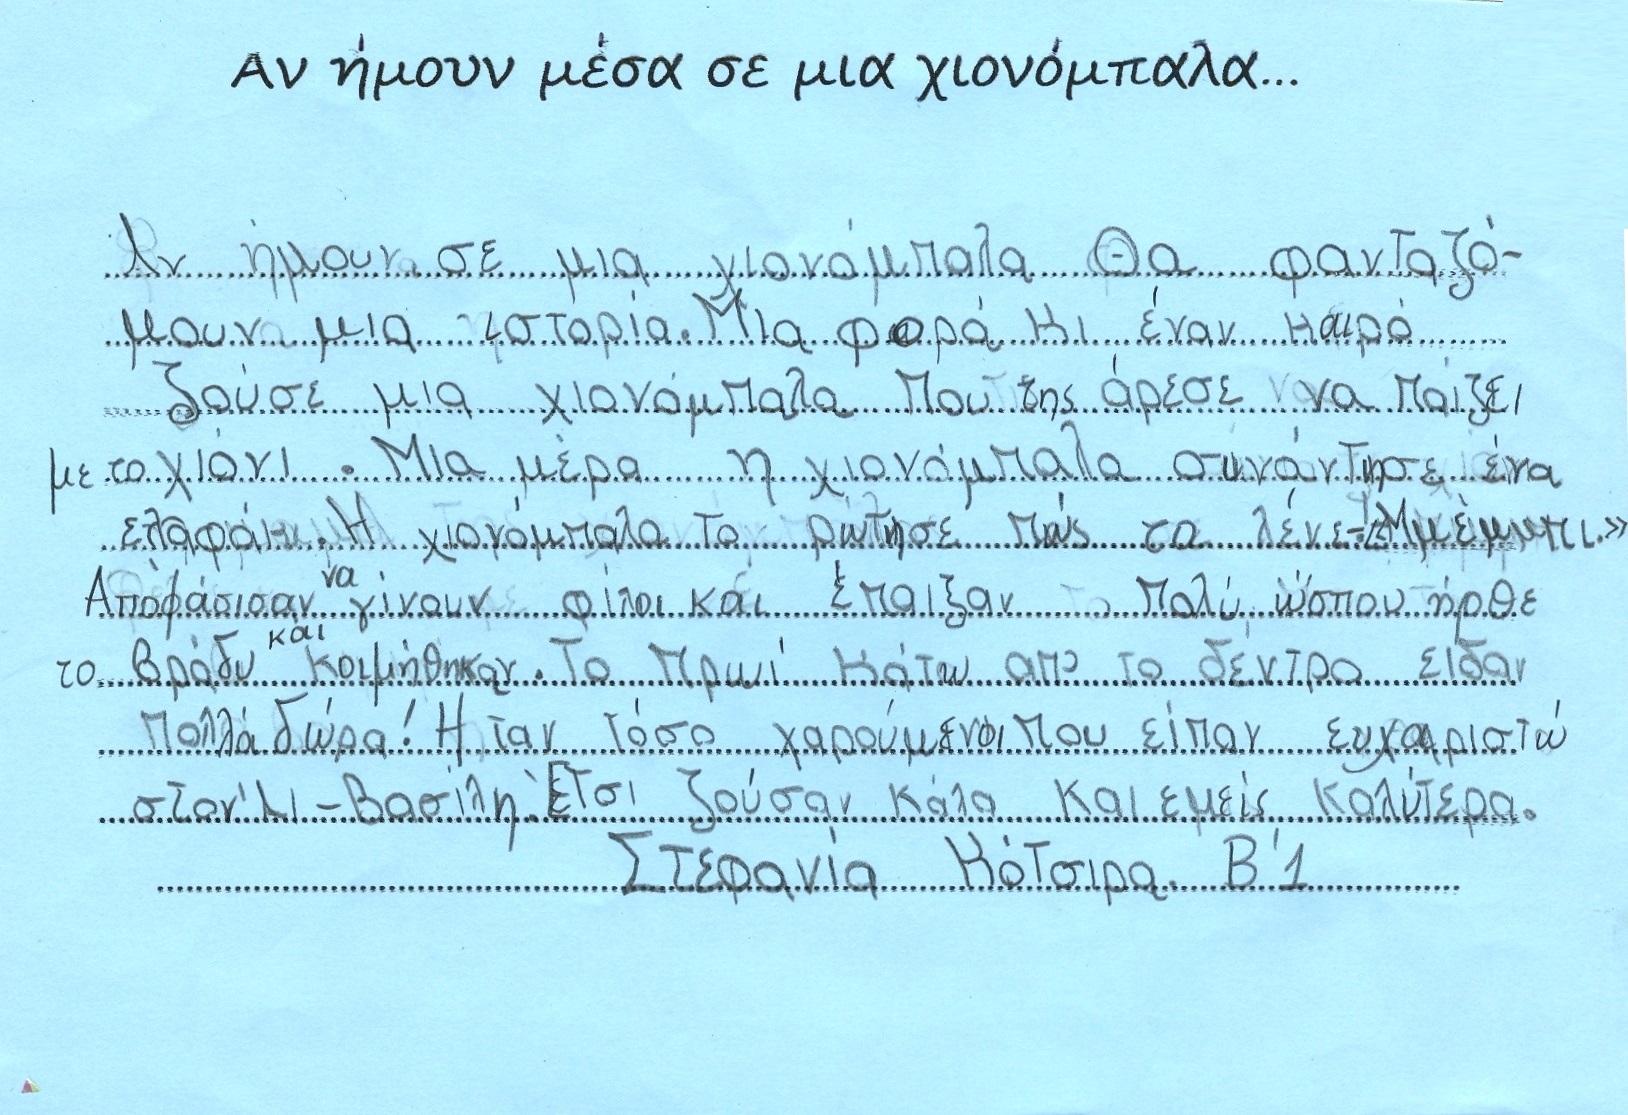 Αν ήμουν μέσα σε μια χιονόμπαλα...
Αν ήμουν σε μια χιονόμπαλα Θα φανταζό-
μουν μια ιστορία. Μια φορά κι έναν καιρό
ζούσε μια χιονόμπαλα που της άρεσε να παίζει
με το χιόνι. Μια μέρα η χιονόμπαλα συνάντησε ένα
ελαφάκι. Η χιονόμπαλα το ρώτησε πώς το λένε-
Αποφάσισαν να γίνουν φίλοι και έπαιξαν πολύ ώσπου ήρθε
το βράδυ και κοιμήθηκαν. Το πρωί κάτω από το δέντρο είδαν
πολλά δώρα! Ήταν τόσο χαρούμενοι που είπαν ευχαριστώ
στον Άι-Βασίλη. Έτσι ζούσαν καλά και εμείς καλύτερα.
Στεφανία Κότσιρα. Β'1